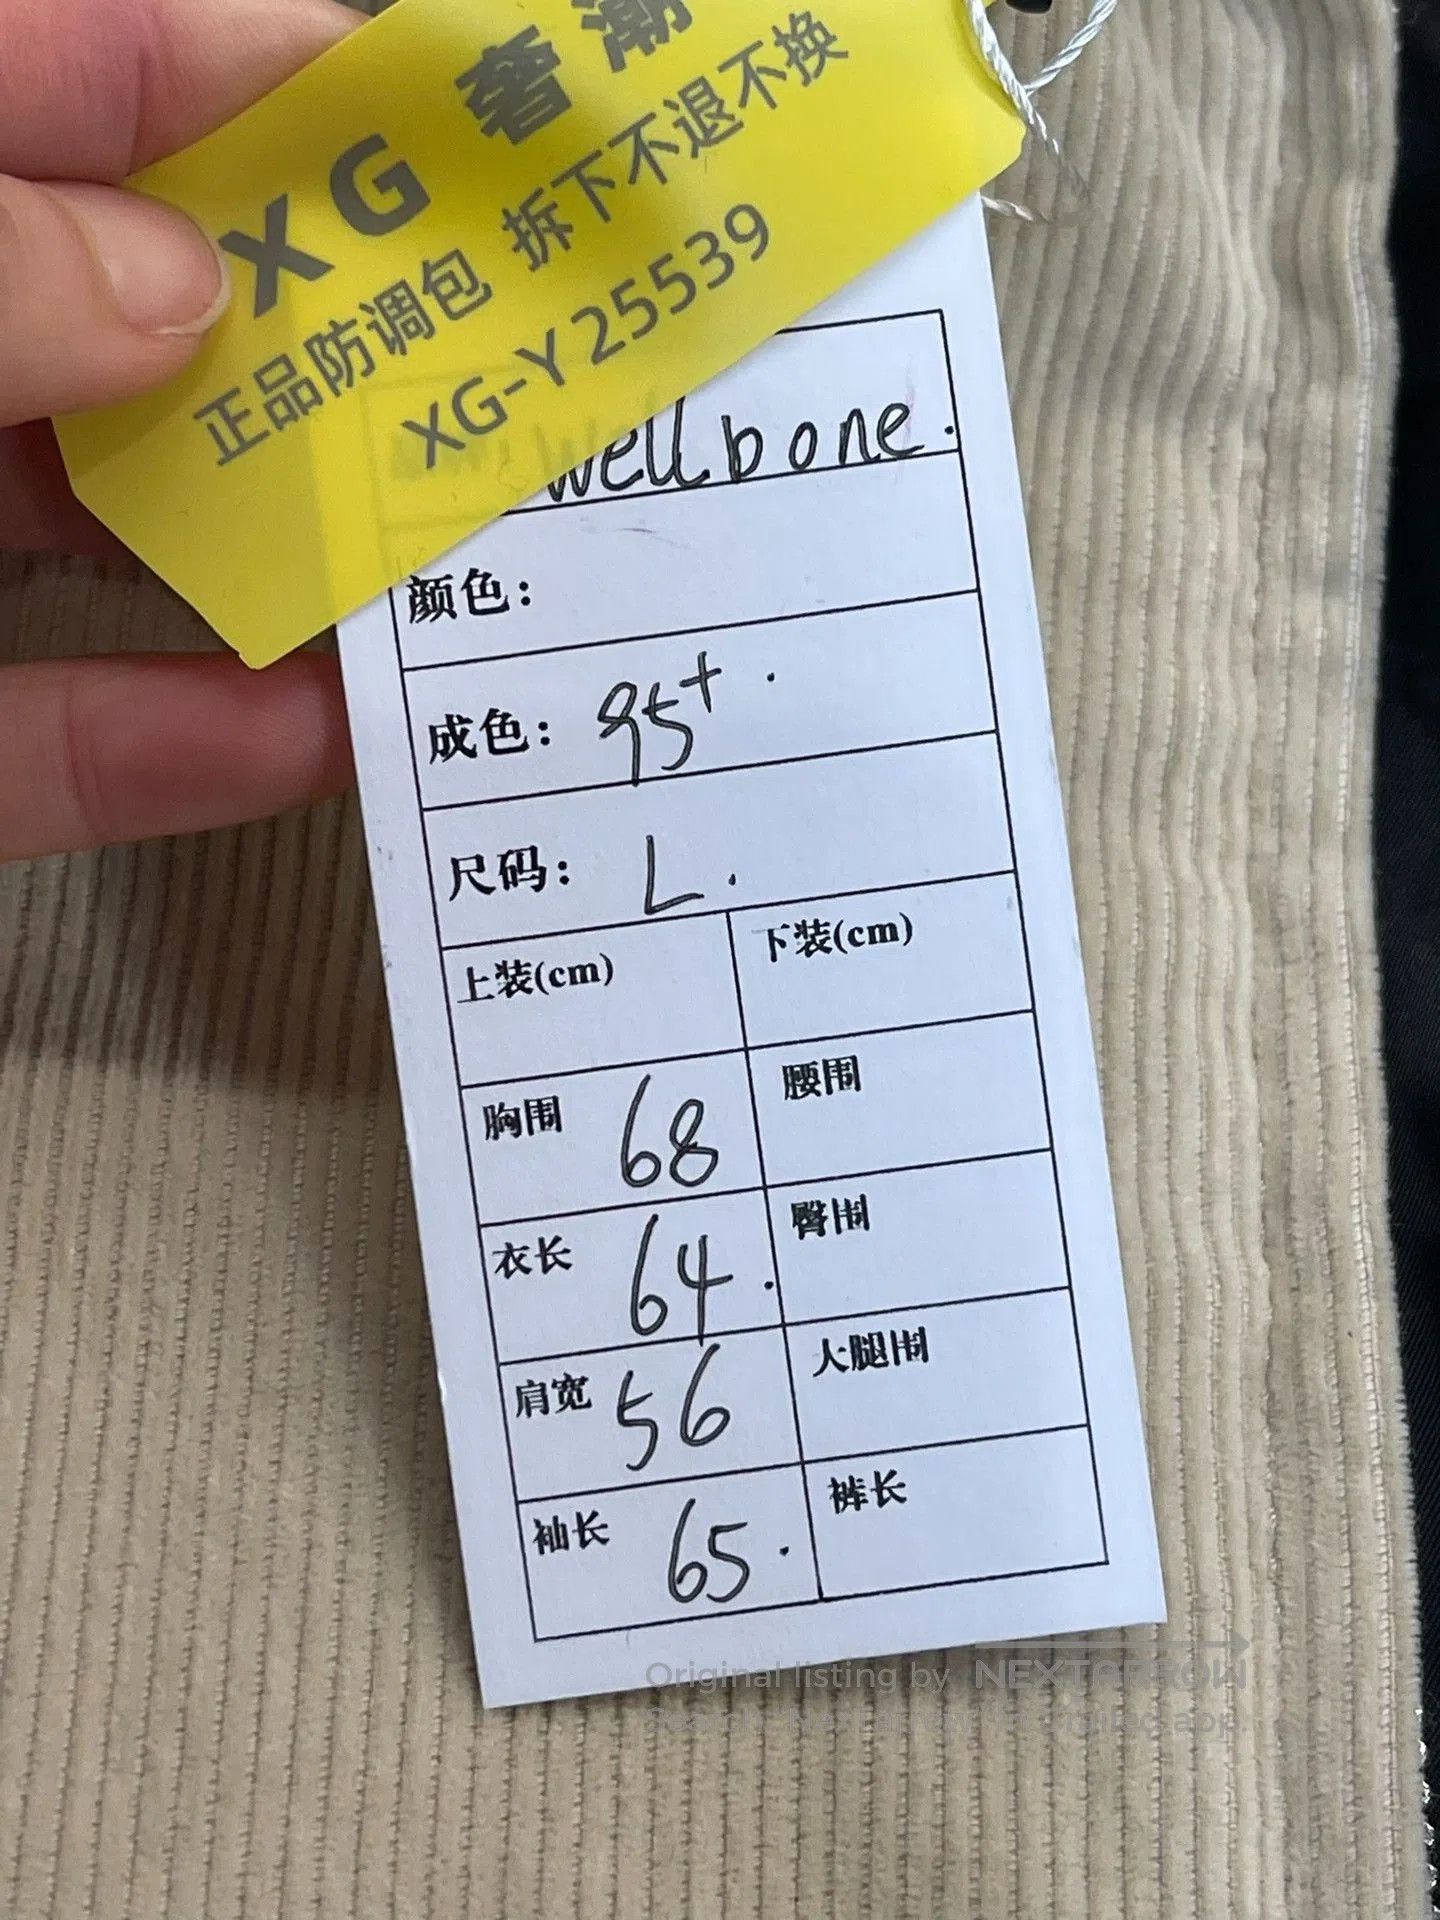 XG 奢潮
正品防调包 拆下不退不换
XG-Y25539
Wellbone.
颜色：
成色： 95+.
尺码： L.
上装(cm) 下装(cm)
胸围 68 腰围
衣长 64. 臀围
肩宽 56 大腿围
袖长 65. 裤长
Original listing by NEXTARROW